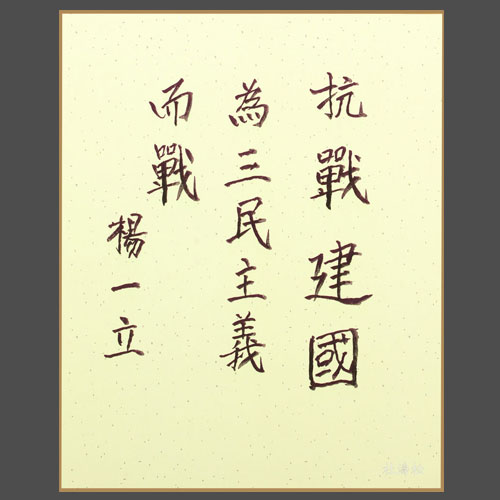 抗戰建國
為三民主義
而戰
楊一立